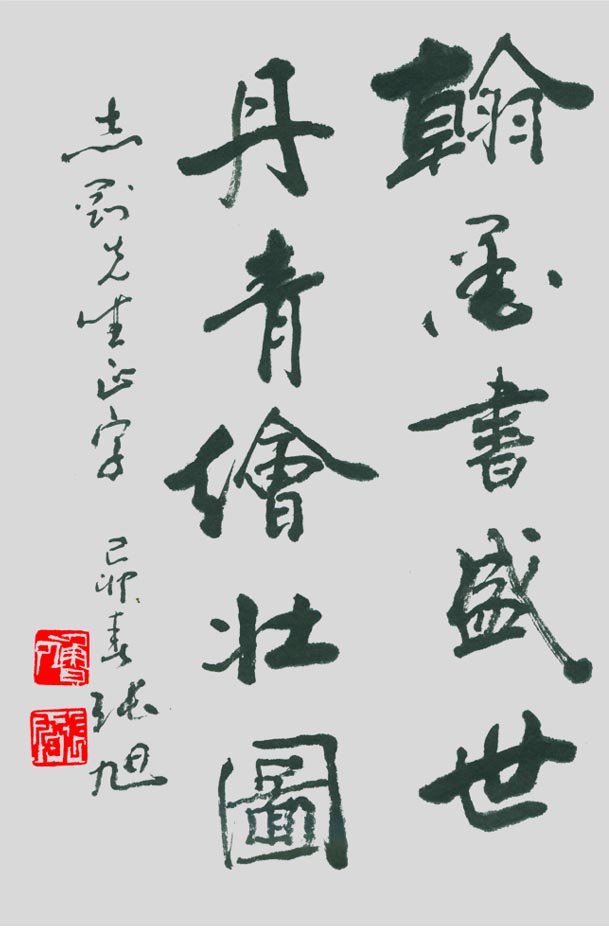 翰墨書盛世
丹青繪壯圖
志剛先生正字 己卯春 張旭